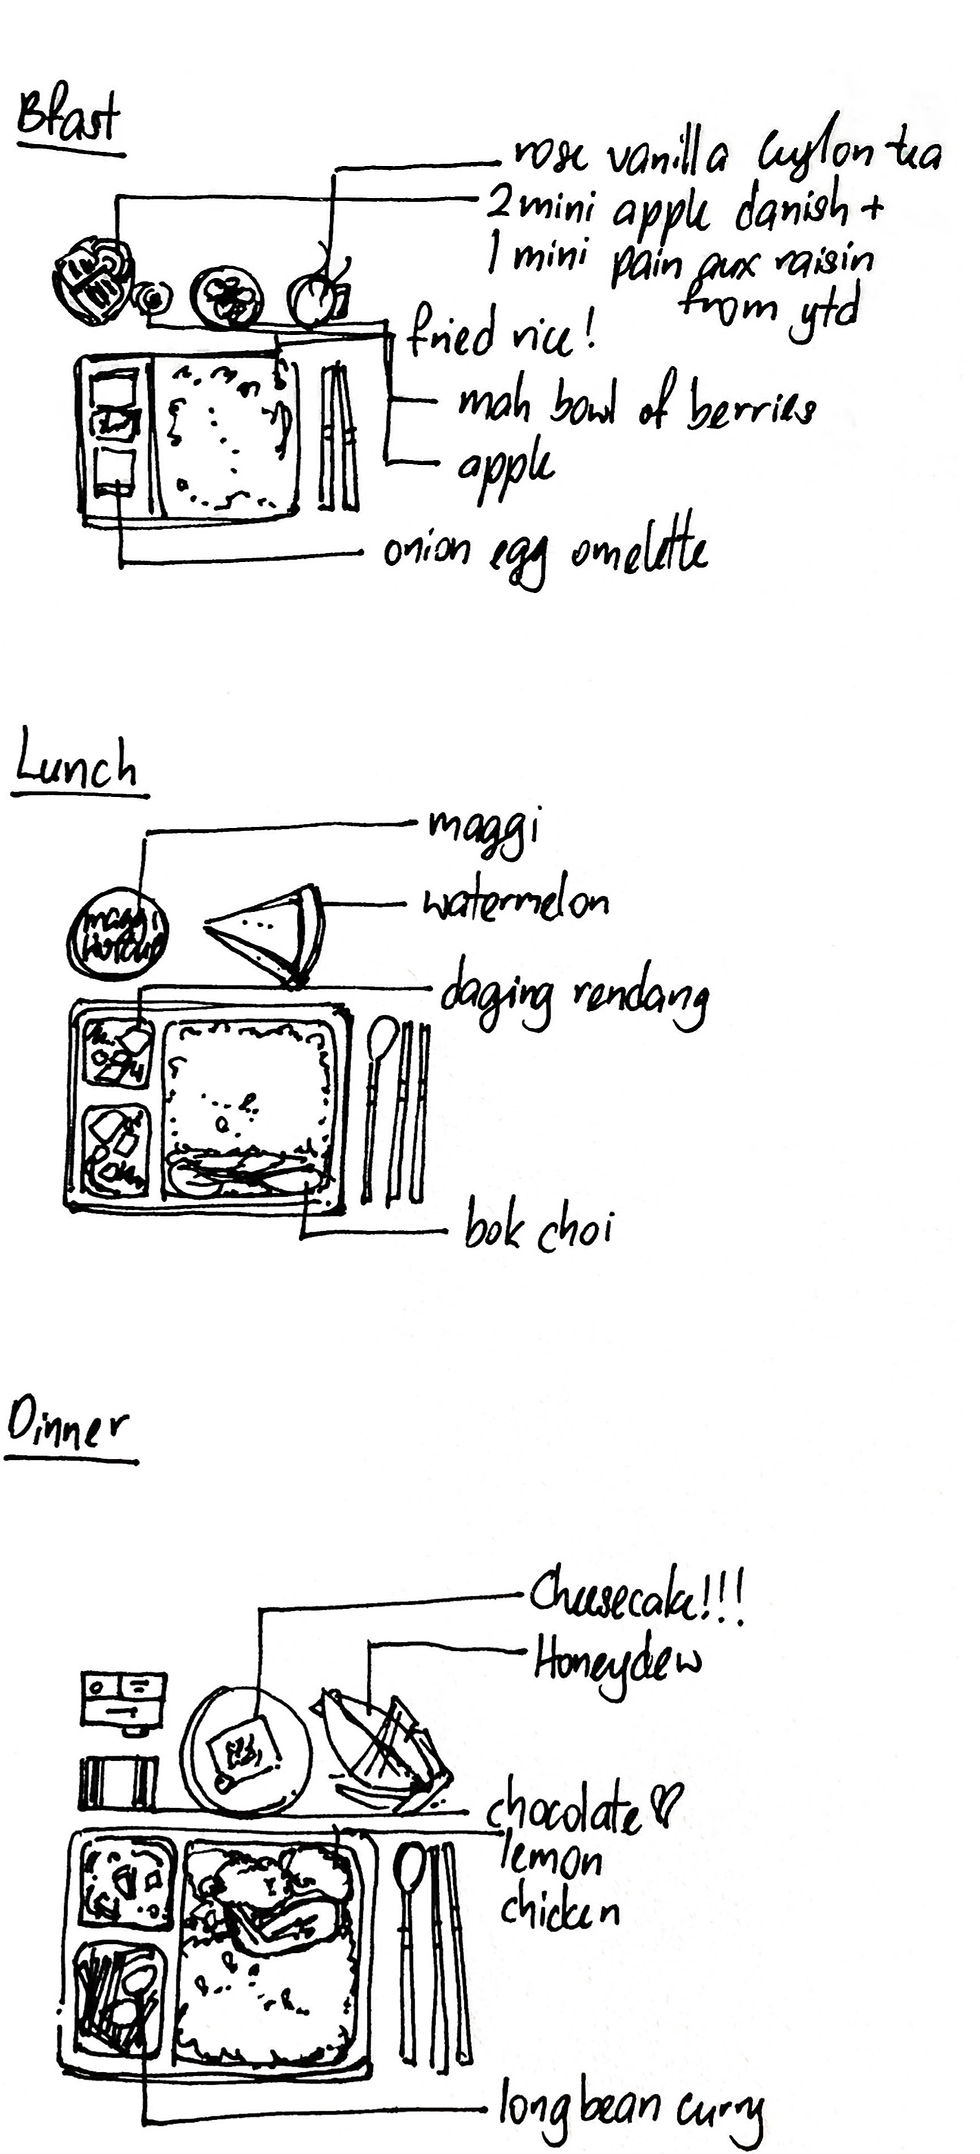 Bfast
rose vanilla ceylon tea
2 mini apple danish +
1 mini pain aux raisin
from ytd
fried rice!
mah bowl of berries
apple
onion egg omelette
Lunch
maggi
maggi
watermelon
daging rendang
bok choi
Dinner
Cheesecake!!!
Honeydew
chocolate ♡
lemon
chicken
long bean curry